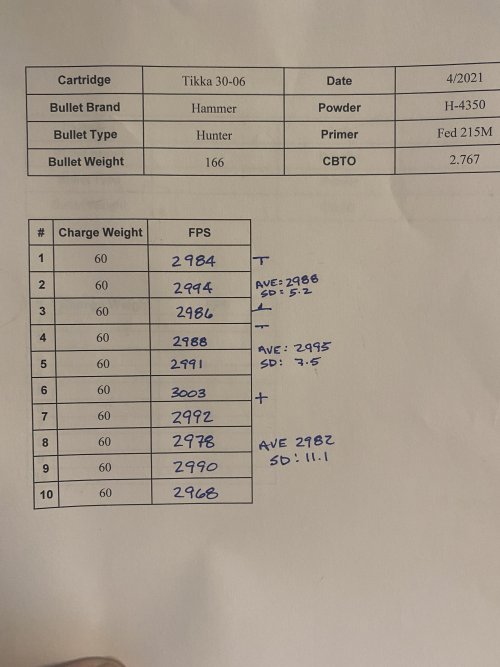 Cartridge Tikka 30-06 Date 4/2021
Bullet Brand Hammer Powder H-4350
Bullet Type Hunter Primer Fed 215M
Bullet Weight 166 CBTO 2.767
# Charge Weight FPS
1 60 2984
2 60 2994 AVE: 2988
SD: 5.2
3 60 2986
4 60 2988
AVE: 2995
5 60 2991 SD: 7.5
6 60 3003
7 60 2992
8 60 2978 AVE 2982
SD: 11.1
9 60 2990
10 60 2968